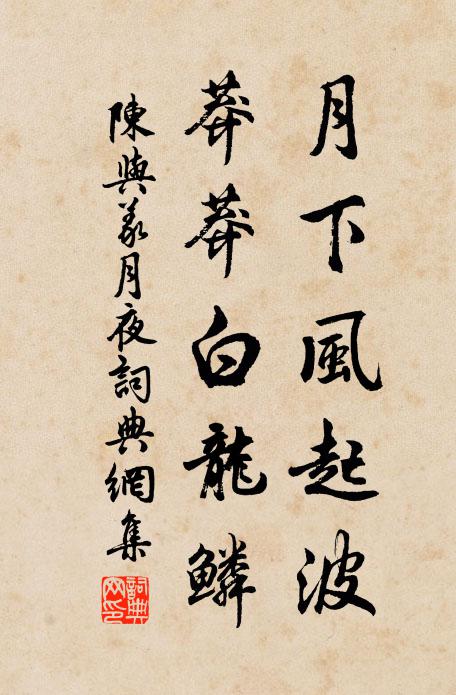 月下風起波
莽莽白龍鱗
陳與義月夜詞典網集
詞典網印